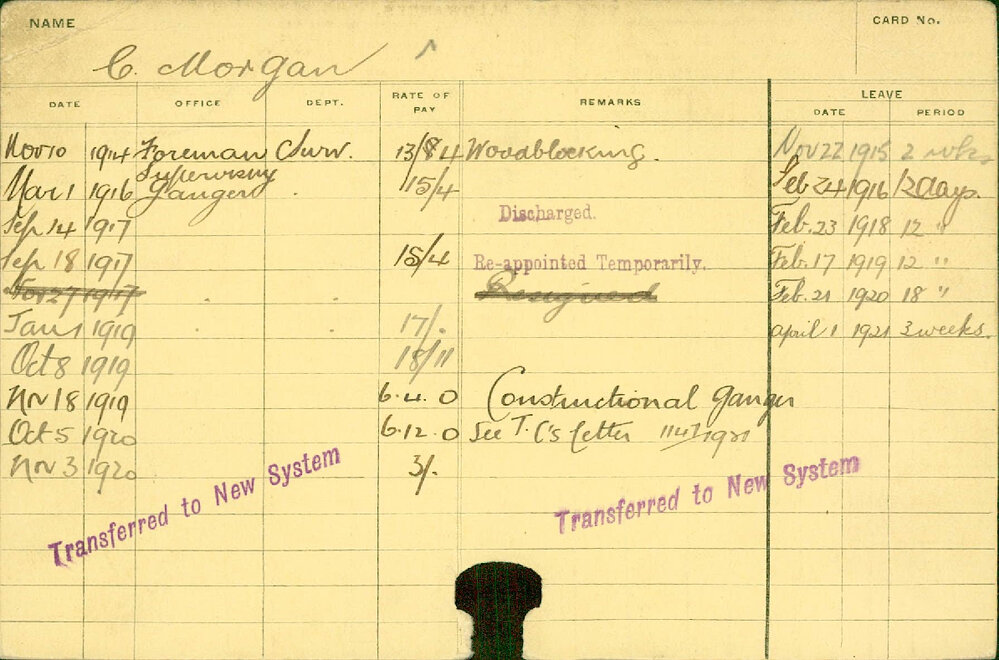 NAME
CARD No.
C. Morgan
DATE OFFICE DEPT. RATE OF PAY REMARKS LEAVE
DATE PERIOD
Nov 10 1914 Foreman Surv. 13/ 4 Woodblocking. Nov 22 1915 2 wks
Mar 1 1916 Supervising Ganger 15/4 Feb 24 1916 12 days.
Sep 14 1917 Discharged. Feb. 23 1918 12 "
Sep 18 1917 15/4 Re-appointed Temporarily. Feb. 17 1919 12 "
Nov 27 1917 Resigned Feb. 21 1920 18 "
Jan 1 1919 17/. april 1 1921 3 weeks.
Oct 8 1919 18/11
Nov 18 1919 6.4.0 Constructional Ganger
Oct 5 1920 6.12.0 See T.C's letter
Nov 3 1920 3/.
Transferred to New System
Transferred to New System